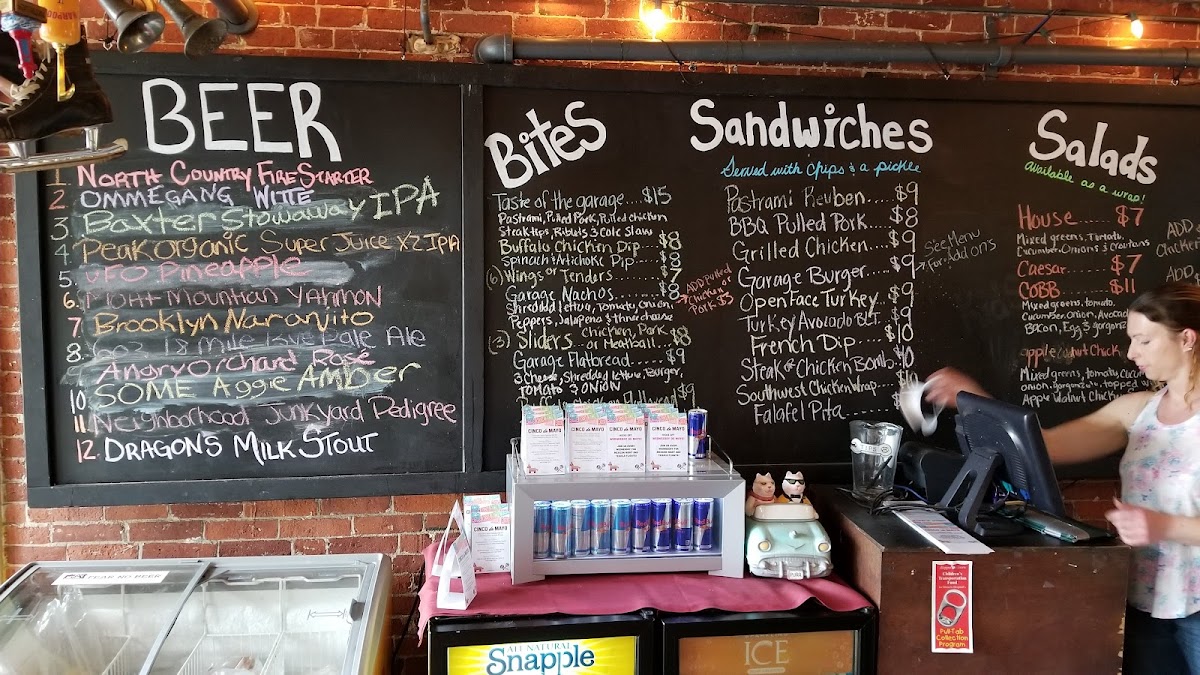 BEER
1. North Country FireStarter
2. Ommegang Witte
3. Baxter Stowaway IPA
4. Peak Organic Super Juice X2 IPA
5. UFO Pineapple
6.
7. Brooklyn Naranjito
8. Mile Pale Ale
Angry Orchard Rosé
10. SOME Aggie AMBER
11. Neighborhood Junkyard Pedigree
12. DRAGON'S MILK STOUT
Bites
Taste of the garage.... $15
Pastrami, Pulled Pork, Pulled chicken
Steak tips, & Cole Slaw
Buffalo Chicken Dip.... $8
Spinach & Artichoke Dip.... $8
(6) Wings or Tenders....... 7
Garage Nachos....... 8
Shredded lettuce, Tomato, Onion,
Peppers, Jalapeno & three cheese
ADD Pulled
Chicken or
Pork $3
(3) Sliders Chicken, Pork
or Meatball.. $8
Garage Flatbread...... $9
3 Cheese, Shredded lettuce, Burger,
Tomato & Onion
$9
Sandwiches
Served with chips & a pickle
Pastrami Reuben.... $9
BBQ Pulled Pork.... $8
Grilled Chicken.... $9
Garage Burger..... $9
Open Face Turkey.. $9
Turkey Avocado BLT.. $9
French Dip...... $10
Steak or Chicken Bomb.. $10
Southwest Chicken Wrap...
Falafel Pita....
See Menu
For Add Ons
Salads
Available as a wrap!
House...... $7
Mixed greens, Tomato,
Cucumber, Onions & Croutons
Caesar....... $7
COBB....... $11
Mixed greens, tomato,
Cucumber, onion, Avocado
Bacon, Egg & gorgonz
apple walnut Chick
Mixed greens, tomato,
onion, gorgonzola, topped w
Apple Walnut Chicken
ADD
Chicken
ADD
CINCO de MAYO
CINCO de MAYO
CINCO de MAYO
CINCO de MAYO
ALL NATURAL
Snapple
ICE
Pull Tab
Collection
Program